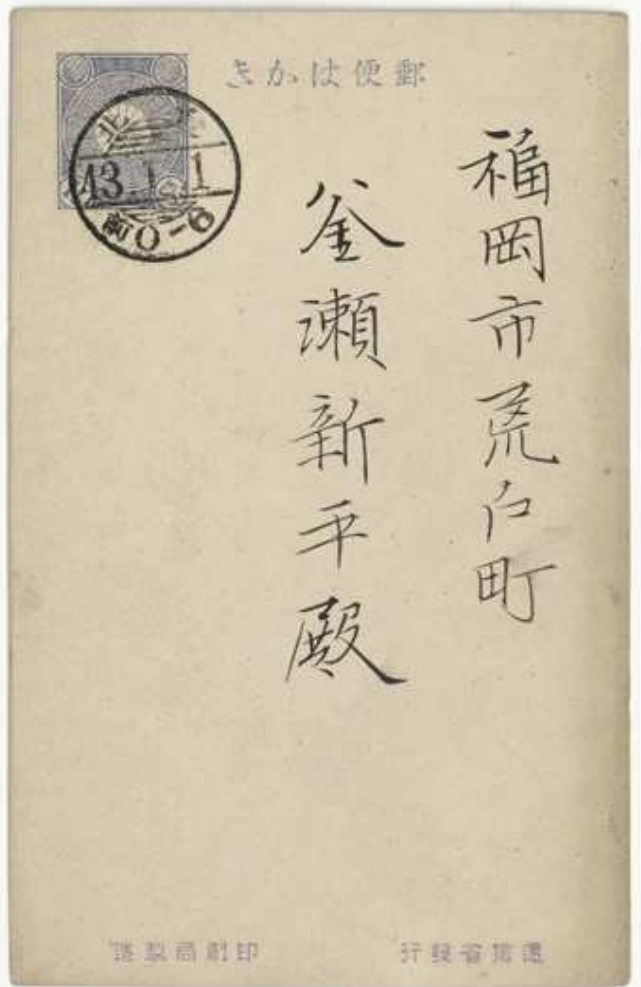 郵便はかき
13.1.1
前0-6
福岡市荒戸町
釜瀬新平殿
遞信省發行
印刷局製造